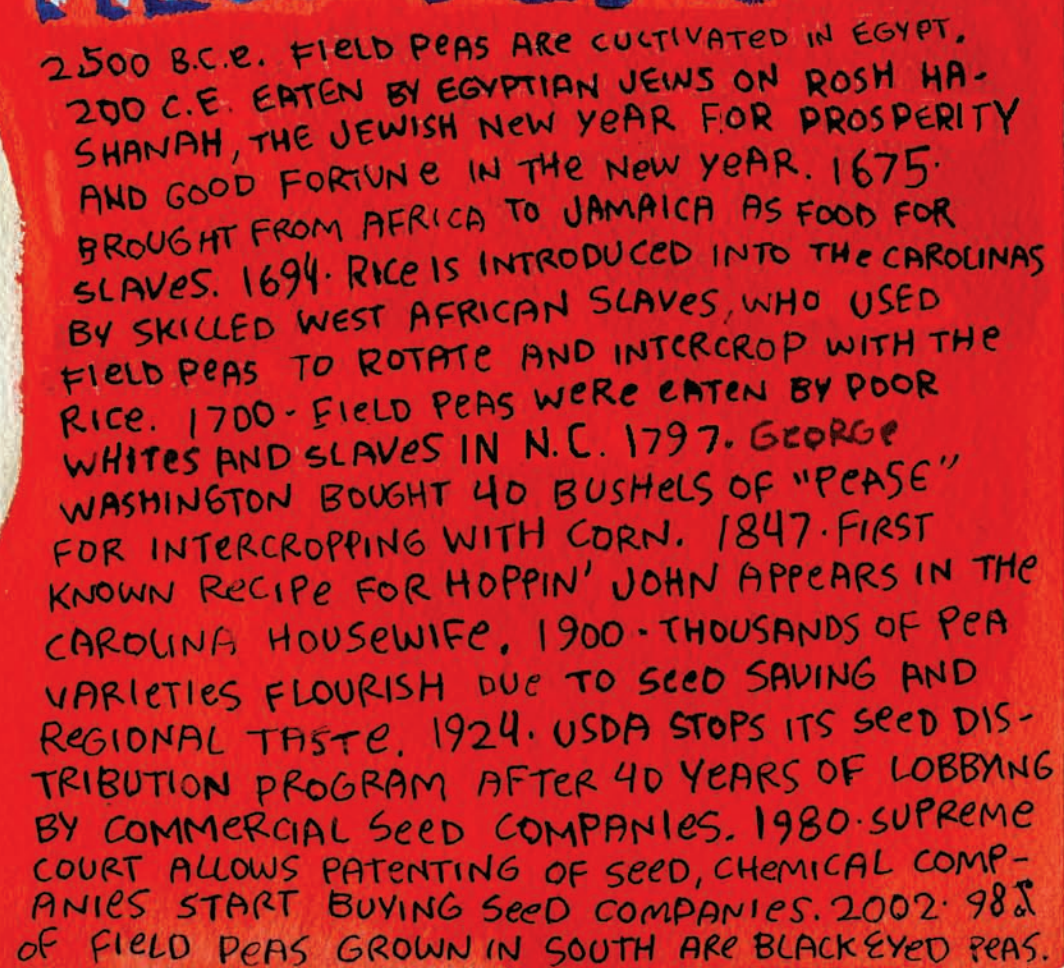 2500 B.C.E. FIELD PEAS ARE CULTIVATED IN EGYPT.
200 C.E. EATEN BY EGYPTIAN JEWS ON ROSH HA-
SHANAH, THE JEWISH NEW YEAR FOR PROSPERITY
AND GOOD FORTUNE IN THE NEW YEAR. 1675.
BROUGHT FROM AFRICA TO JAMAICA AS FOOD FOR
SLAVES. 1694. RICE IS INTRODUCED INTO THE CAROLINAS
BY SKILLED WEST AFRICAN SLAVES, WHO USED
FIELD PEAS TO ROTATE AND INTERCROP WITH THE
RICE. 1700 - FIELD PEAS WERE EATEN BY POOR
WHITES AND SLAVES IN N.C. 1797. GEORGE
WASHINGTON BOUGHT 40 BUSHELS OF "PEASE"
FOR INTERCROPPING WITH CORN. 1847. FIRST
KNOWN RECIPE FOR HOPPIN' JOHN APPEARS IN THE
CAROLINA HOUSEWIFE. 1900 - THOUSANDS OF PEA
VARIETIES FLOURISH DUE TO SEED SAVING AND
REGIONAL TASTE. 1924. USDA STOPS ITS SEED DIS-
TRIBUTION PROGRAM AFTER 40 YEARS OF LOBBYING
BY COMMERCIAL SEED COMPANIES. 1980. SUPREME
COURT ALLOWS PATENTING OF SEED, CHEMICAL COMP-
ANIES START BUYING SEED COMPANIES. 2002. 98%
OF FIELD PEAS GROWN IN SOUTH ARE BLACK EYED PEAS.